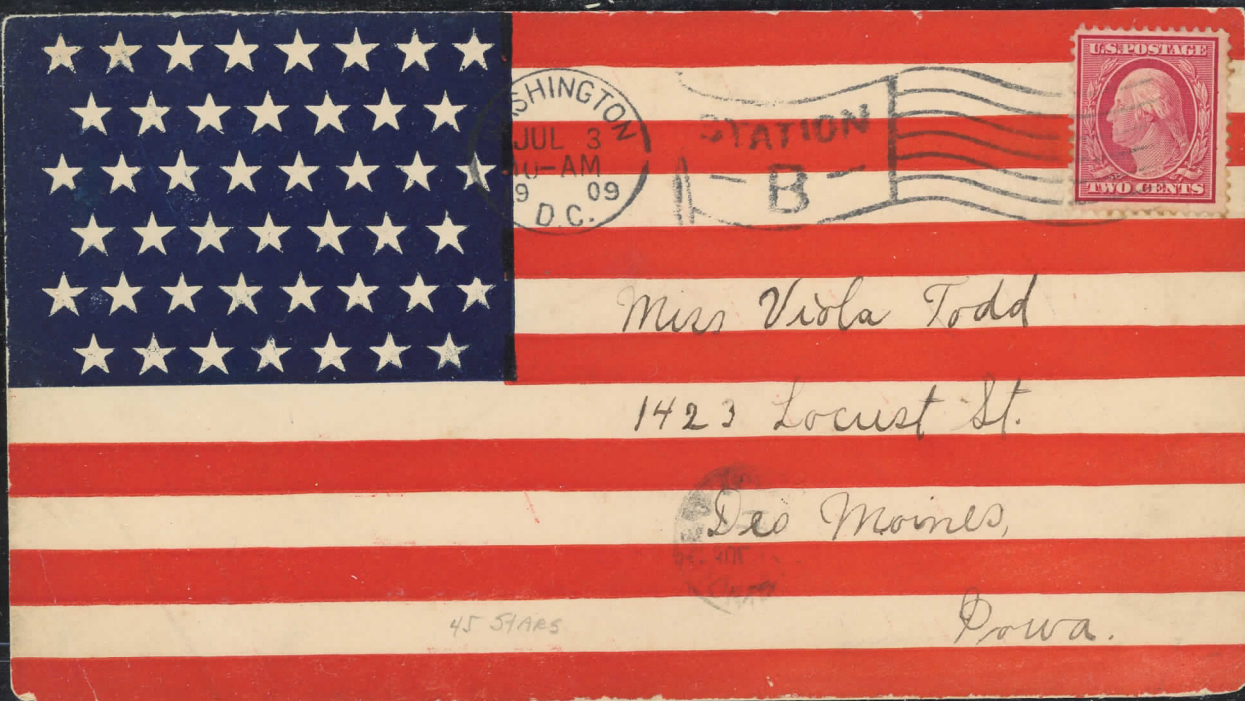 WASHINGTON
JUL 3
10-AM
9 09
D.C.
STATION
B
U.S. POSTAGE
TWO CENTS
Miss Viola Todd
1423 Locust St.
Des Moines,
Iowa.
45 STARS